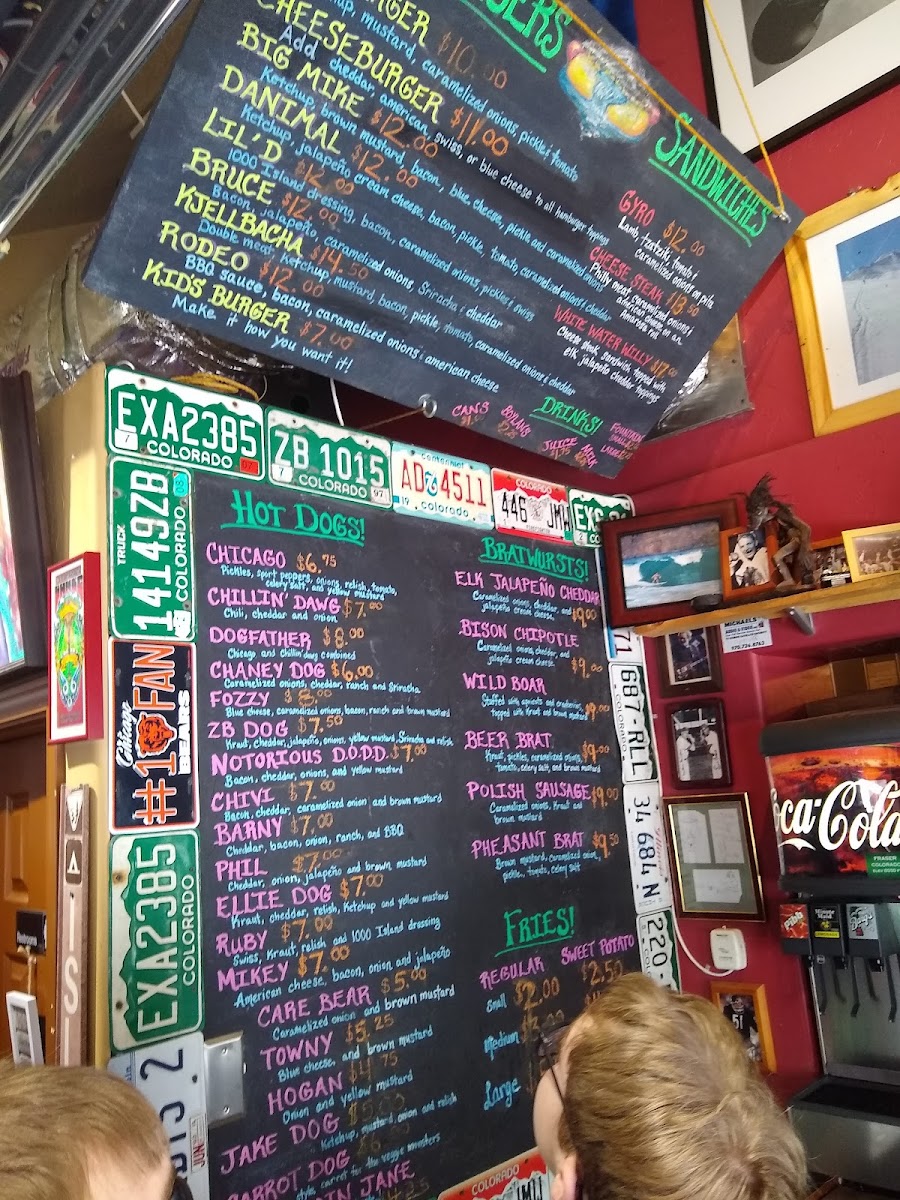 $10.00
ketchup, mustard, caramelized onions, pickle & tomato
CHEESEBURGER $11.00
Add cheddar, american, swiss, or blue cheese to all hamburger toppings
BIG MIKE $12.00
Ketchup, brown mustard, bacon, blue cheese, pickle and caramelized onions
DANIMAL $12.00
Ketchup, jalapeño cream cheese, bacon, pickle, tomato, caramelized onions & cheddar
LIL'D $12.00
1000 Island dressing, bacon, caramelized onions, pickle & swiss
BRUCE $12.00
Bacon, jalapeño, caramelized onions, Sriracha & cheddar
KJELLBACHA $14.50
Double meat, Ketchup, mustard, bacon, pickle, tomato, caramelized onions & cheddar
RODEO $12.00
BBQ sauce, bacon, caramelized onions & american cheese
KID'S BURGER $7.00
Make it how you want it!
SANDWICHES
GYRO $12.00
Lamb, Tzatziki, tomato &
caramelized onions on pita
CHEESE STEAK $13.50
Philly meat, caramelized onions &
american cheese on an
Amoroso roll
WHITE WATER WILLY $17.00
Cheese steak sandwich topped with
elk jalapeño cheddar toppings
DRINKS!
CANS
JUICE
MILK
EXA2385
COLORADO
07
ZB 1015
COLORADO
Centennial
AD 4511
colorado
COLORADO
446 JMW
14149ZB
TRUCK
COLORADO
Chicago
#1 FAN
BEARS
EXA2385
COLORADO
687-RLL
COLORADO
34 684 N
220
COLORADO
HOT DOGS!
CHICAGO $6.75
Pickles, sport peppers, onions, relish, tomato,
celery salt, and yellow mustard
CHILLIN' DAWG $7.00
Chili, cheddar and onion
DOGFATHER $8.00
Chicago and Chillin' dawg combined
CHANEY DOG $6.00
Caramelized onions, cheddar, ranch and Sriracha
FOZZY $8.00
Blue cheese, caramelized onions, bacon, ranch and brown mustard
ZB DOG $7.50
Kraut, cheddar, jalapeño, onions, yellow mustard, Sriracha and relish
NOTORIOUS D.O.D.D. $7.00
Bacon, cheddar, onions, and yellow mustard
CHIVI $7.00
Bacon, cheddar, caramelized onion and brown mustard
BARNY $7.00
Cheddar, bacon, onion, ranch, and BBQ
PHIL $7.00
Cheddar, onion, jalapeño and brown mustard
ELLIE DOG $7.00
Kraut, cheddar, relish, Ketchup and yellow mustard
RUBY $7.00
Swiss, Kraut, relish and 1000 Island dressing
MIKEY $7.00
American cheese, bacon, onion and jalapeño
CARE BEAR $5.00
Caramelized onion and brown mustard
TOWNY $5.25
Blue cheese, and brown mustard
HOGAN $4.75
Onion and yellow mustard
JAKE DOG
Ketchup, mustard, onion and relish
CARROT DOG
style carrot for the veggie monsters
JANE
BRATWURSTS!
ELK JALAPEÑO CHEDDAR
Caramelized onions, cheddar, and
jalapeño cream cheese. $9.00
BISON CHIPOTLE
Caramelized onions, cheddar, and
jalapeño cream cheese. $9.00
WILD BOAR
Stuffed with apricots and cranberries,
topped with Kraut and brown mustard $9.00
BEER BRAT $9.00
Kraut, pickles, caramelized onions,
tomato, celery salt, and brown mustard
POLISH SAUSAGE $9.00
Caramelized onions, Kraut and
brown mustard
PHEASANT BRAT $9.50
Brown mustard, caramelized onion,
pickle, tomato, celery salt
FRIES!
REGULAR SWEET POTATO
Small $2.00 $2.50
Medium
Large
MICHAELS
Coca-Cola
FRASER
COLORADO
COLORADO